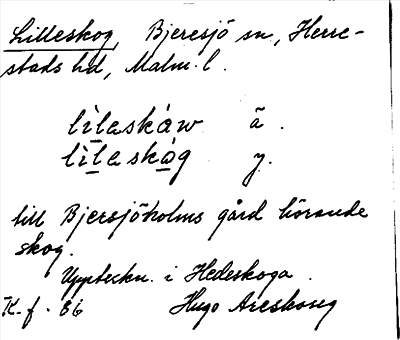 Lilleskog, Bjeresjö sn, Herre-
stads hd, Malm. l.
lìlaskáw ä.
lìlaskóg y.
till Bjersjöholms gård hörande
skog.
Uppteckn. i Hedeskoga.
K. f. 36 Hugo Areskoug